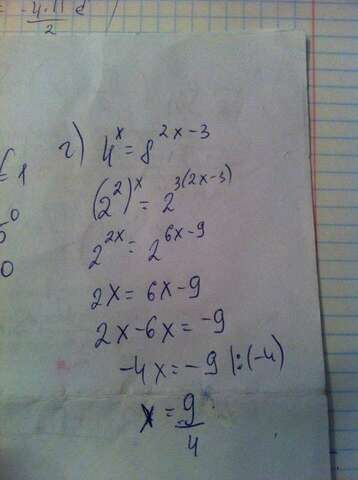 -4·11
2
1
0
0
г) 4^x = 8^{2x-3}
(2^2)^x = 2^{3(2x-3)}
2^{2x} = 2^{6x-9}
2x = 6x-9
2x-6x = -9
-4x = -9 |:(-4)
x = 9/4